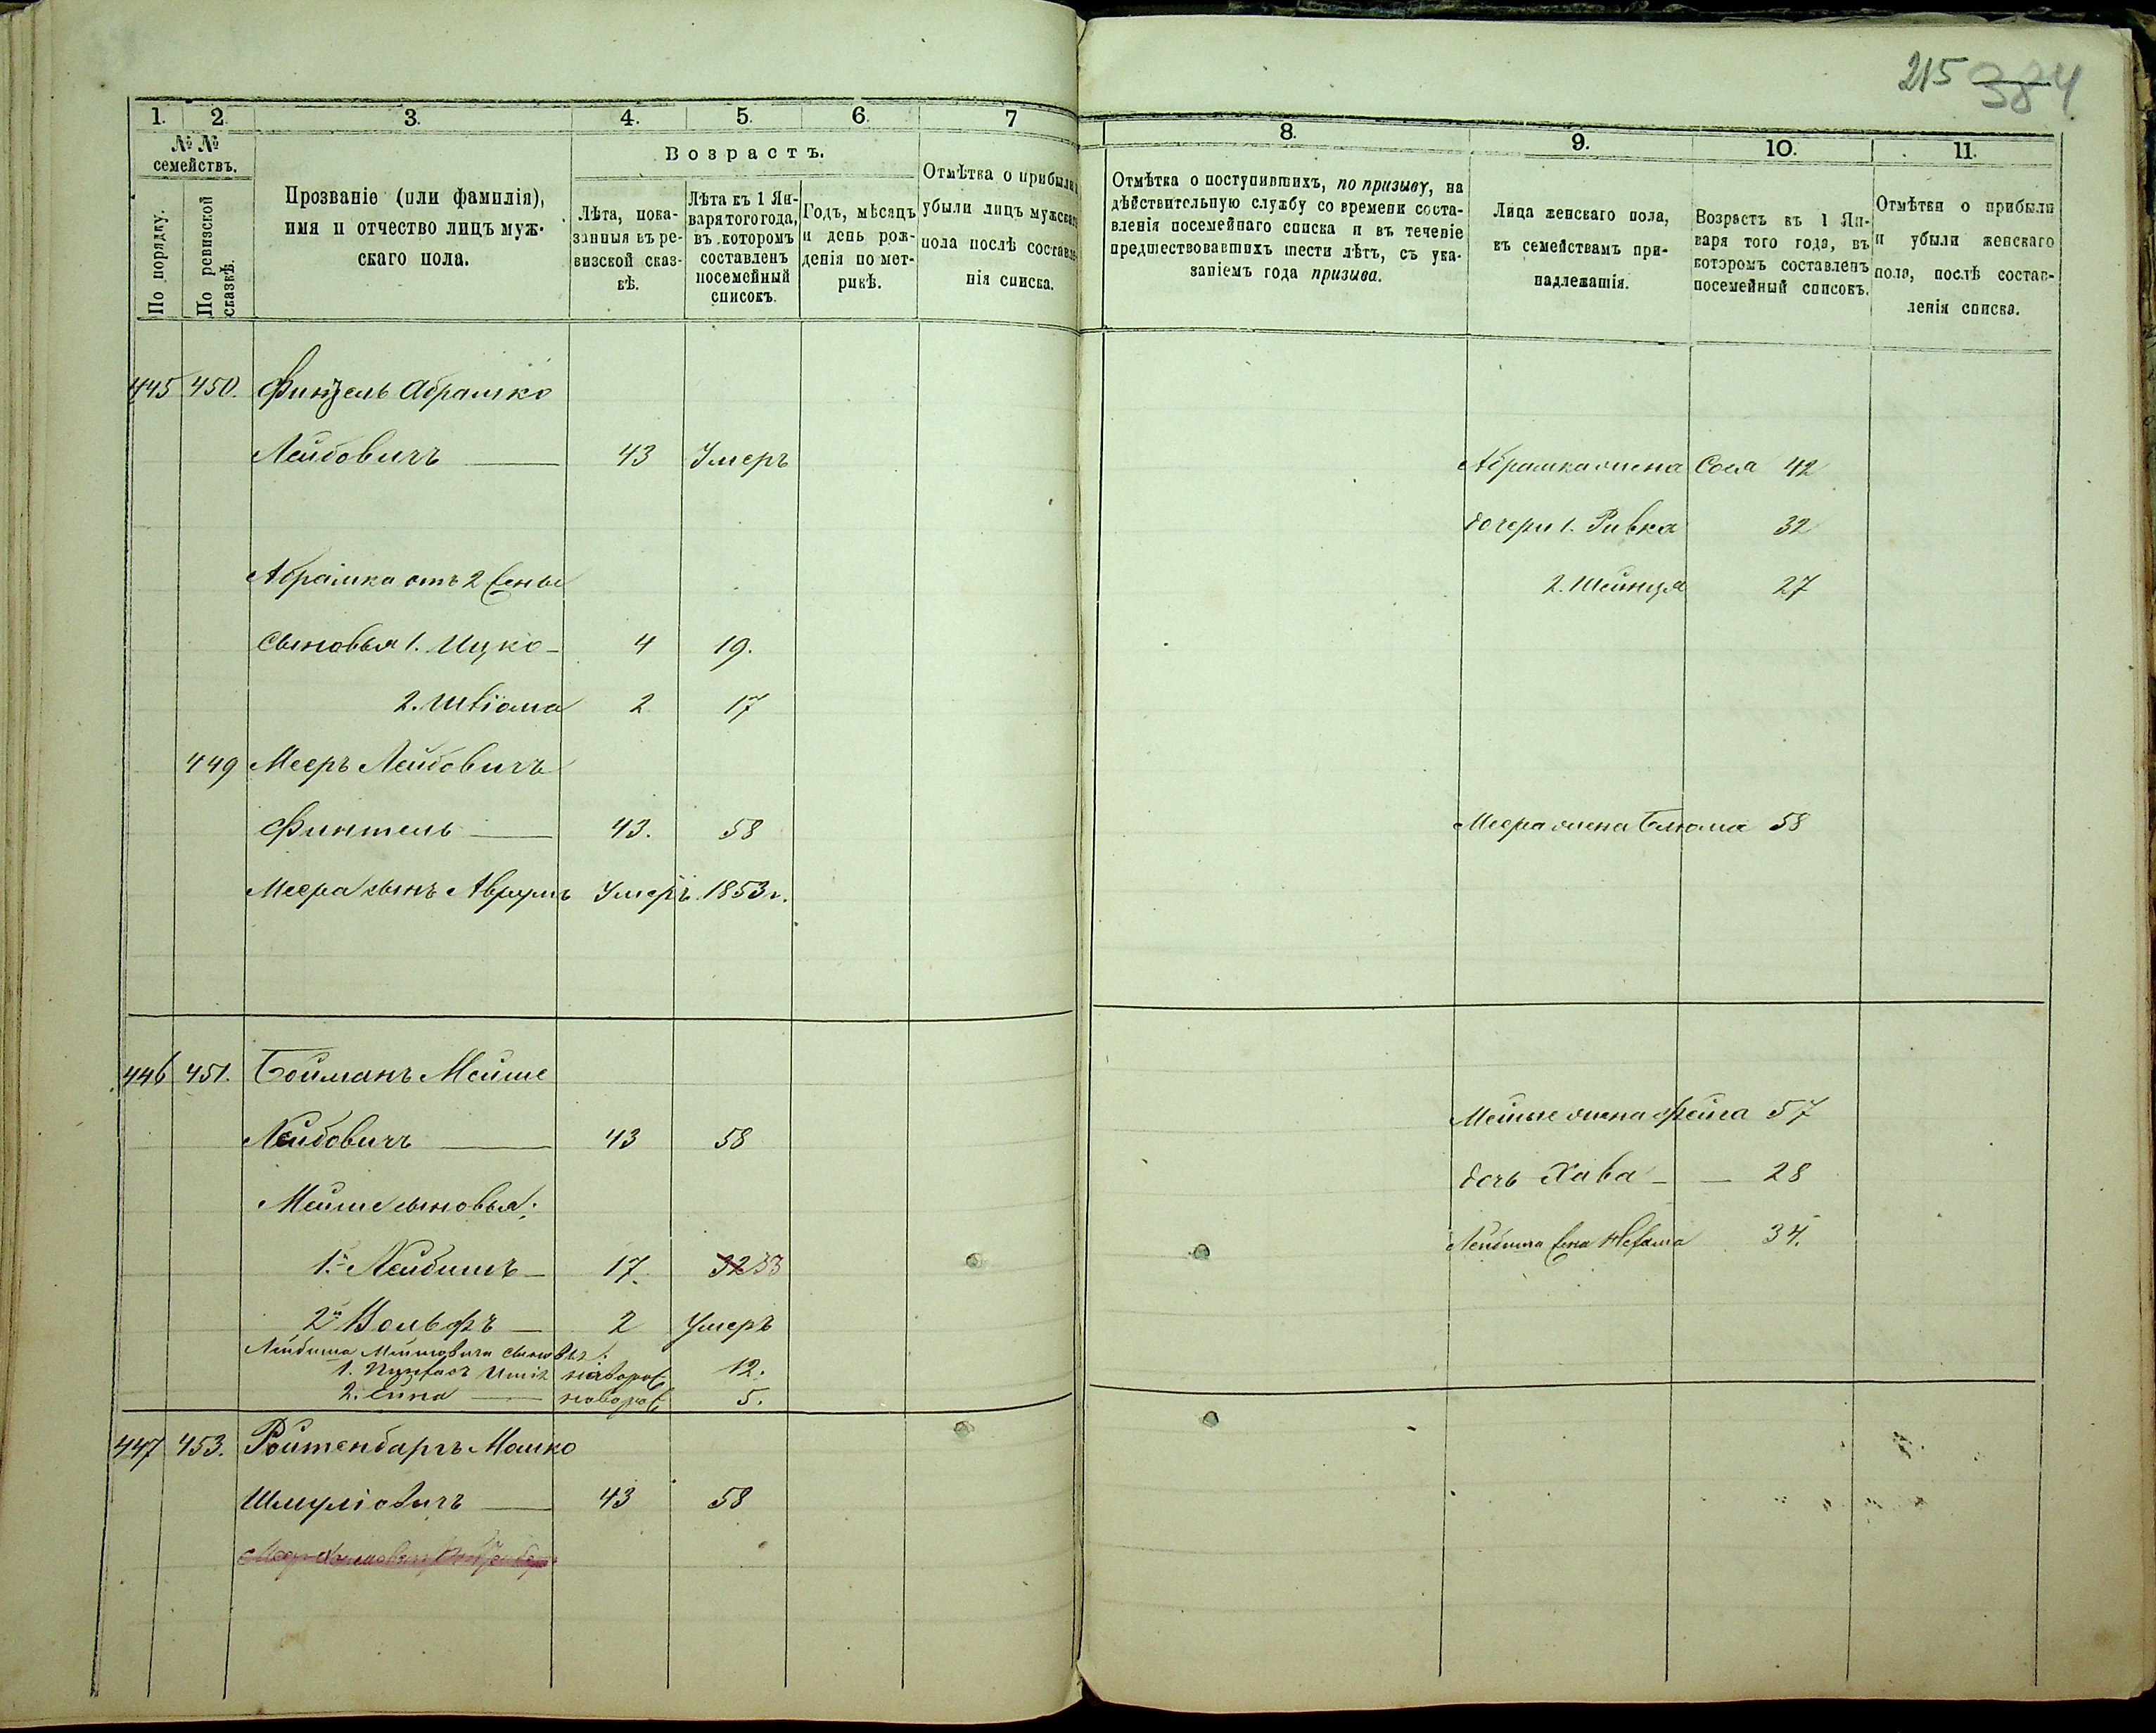 215 384
1. 2. 3. 4. 5. 6. 7
№ № семействъ.
По порядку.
По ревизской сказкѣ.
Прозваніе (или фамилія),
имя и отчество лицъ муж-
скаго пола.
Возрастъ.
Лѣта, пока-
занныя въ ре-
визской сказ-
кѣ.
Лѣта къ 1 Ян-
варя того года,
въ которомъ
составленъ
посемейный
списокъ.
Годъ, мѣсяцъ
и день рож-
денія по мет-
рикѣ.
Отмѣтка о прибыли
убыли лицъ мужскаго
пола послѣ составле-
нія списка.
8. 9. 10. 11.
Отмѣтка о поступившихъ, по призыву, на
дѣйствительную службу со времени соста-
вленія посемейнаго списка и въ теченіе
предшествовавшихъ шести лѣтъ, съ ука-
заніемъ года призыва.
Лица женскаго пола,
къ семействамъ при-
надлежащія.
Возрастъ къ 1 Ян-
варя того года, въ
которомъ составленъ
посемейный списокъ.
Отмѣтки о прибыли
и убыли женскаго
пола, послѣ состав-
ленія списка.
445 450. Финтель Абрамко
Лейбовичъ — 43 Умеръ
Абрамка жена Сося 42
дочери 1. Ривка 32
Абрамка отъ 2 жены
2. Шейндя 27
сыновья 1. Ицко - 4 19.
2. Швіома 2 17
449 Мееръ Лейбовичъ
Финтель — 43. 58
Меера жена Блюма 58
Меера сынъ Аврумъ Умеръ 1853 г.
446 451. Бойманъ Мейше
Лейбовичъ — 43 58
Мейше жена Фейга 57
Мейше сыновья:
дочь Хава - — 28
1й Лейбишъ - 17. 32 33
Лейбиша жена 34.
2й Вольфъ — 2 Умеръ
Лейбиша Мейшовича сыновья:
1. новорож 12.
2. — новорож 5.
447 453. Ройтенбаргъ Мошко
Шмуліовичъ — 43 58